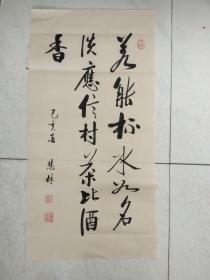 若能杯水如名
淡應信村茶比酒
香
己亥春 慧林